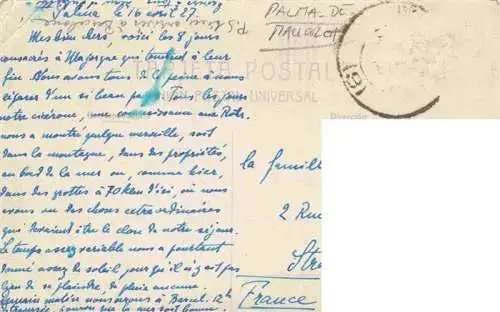 Palma, le 16 avril 27.
Mes bien chers, voici les 8 jours
consacrés à Majorque qui touchent à leur
fin. Nous avons tous de la peine à nous
séparer d'un si beau pays. Tous les jours
notre cicérone, une connaissance aux Rotr.
nous a montré quelque merveille, soit
dans la montagne, dans des propriétés,
au bord de la mer ou, comme hier,
dans des grottes à 70 km d'ici, où nous
avons vu des choses extraordinaires
qui devaient être le clou de notre séjour.
Le temps assez variable nous a pourtant
donné assez de soleil pour qu'il n'y ait pas
lieu de se plaindre de pluie aucune.
Demain matin nous serons à Barcel. 12h
de traversée, pourvu que la mer soit bonne.
P.S.
PALMA-DE
MALLORCA
TARJETA POSTAL
UNION POSTAL UNIVERSAL
Dirección
(8)
La famille
2 Rue
Str
France